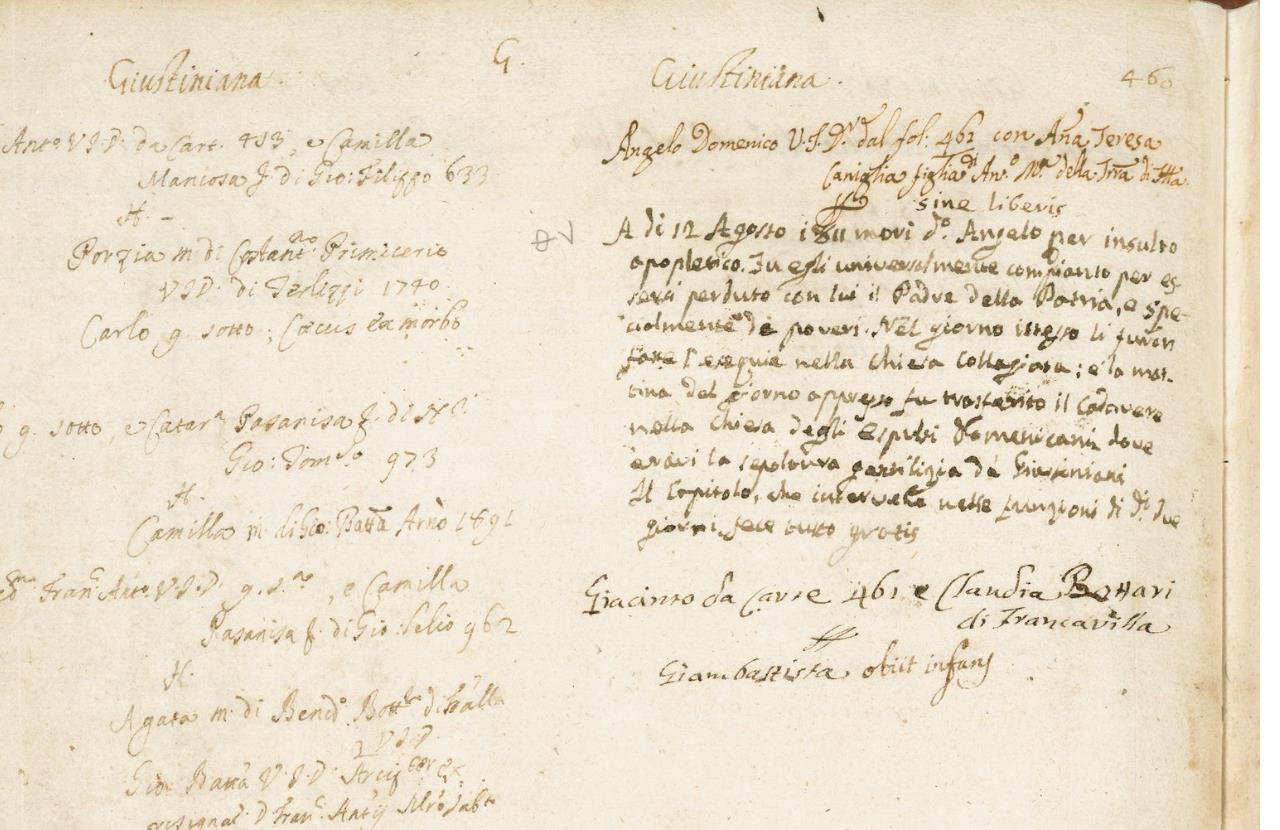 G.
Giustiniana.
Ant.º V.J.D. da Cart. 413, e Camilla
Maniosa f. di Gio: Filippo 633
H. -
Porzia m. di Costant.no Primicerio
V.J.D. di Terlizzi 1740
Carlo g. sotto; Cœcus ex morbo
g. sotto, e Catar.a Pasanisa f. di
Gio: Tom.so 973
H.
Camilla m. di Gio: Batta Arnò 1891
Fran.c Ant.º V.J.D. g. s.ra, e Camilla
Pasanisa f. di Gio: Lelio 962
H.
Agata m. di Bened.º di
V.J.D.
Gio: Batta V.J.D.
D. Fran.c Antij
Giustiniana.
460
Angelo Domenico V.J.D.r dal fol: 461 con Aña Teresa
Caniglia figlia di An.º M.a della Trra di
sine liberis
A di 12 Agosto 1811 morì d.º Angelo per insulto
apopletico. Fu egli universalmente compianto per es
sersi perduto con lui il Padre della Patria, e spe-
cialmente de poveri. Nel giorno istesso li furon
fatte l'esequie nella Chiesa Collegiata; e la mat-
tina del giorno appresso fu trasferito il Cadavere
nella Chiesa degli espulsi Domenicani dove
eravi la sepoltura gentilizia de Giustiniani
Il Capitolo, che intervenne nelle funzioni di d.i due
giorni, fece tutto gratis
Giacinto da Carte 461 e Claudia Bottari
di Francavilla
Giambattista obiit infans